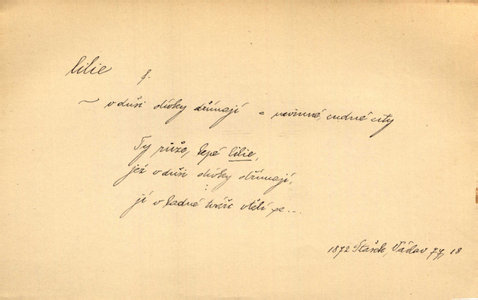 lilie f.
~ v duši dívky dřímají = nevinné, cudné city
Ty růže, lepé lilie,
jež v duši dívky dřímají,
jí v ladné tváře vlétí se...
1872 Stašek, Václav 77, 18